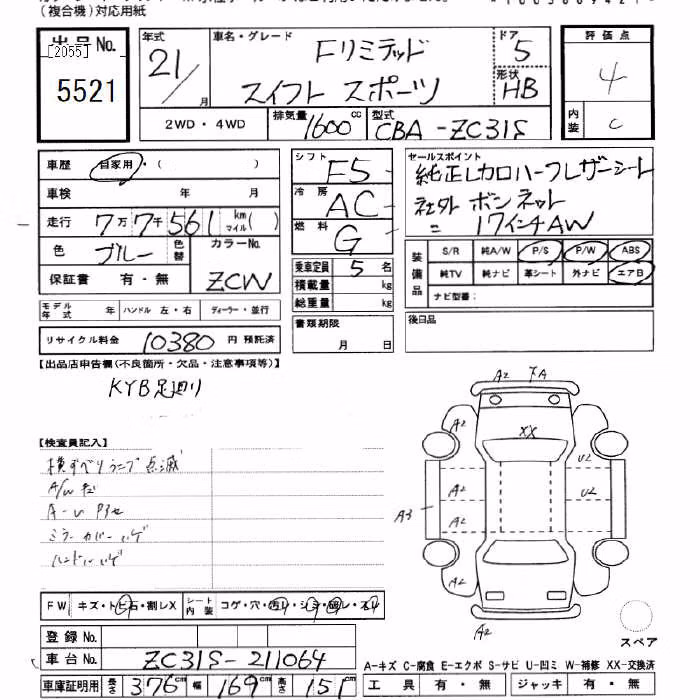 (複合機)対応用紙
出品No.
[2055]
5521
年式
21/
月
車名・グレード
Fリミテッド
スイフト スポーツ
ドア
5
形状
HB
2WD・4WD
排気量
1600
cc
型式
CBA-ZC31S
評価点
4
内装
C
車歴
自家用・( )
車検 年 月
走行 7万7千561 km マイル( )
色 ブルー 色替
カラーNo.
ZCW
保証書 有・無
モデル年式 年 ハンドル 左・右 ディーラー・並行
リサイクル料金 10380 円 預託済
シフト F5
冷房 AC
燃料 G
乗車定員 5 名
積載量 kg
総重量 kg
書類期限
月 日
セールスポイント
純正レカロハーフレザーシート
社外 ボンネット
〃 17インチAW
装備品
S/R 純A/W P/S P/W ABS
純TV 純ナビ 革シート 外ナビ エアB
ナビ型番:
後日品
【出品店申告欄(不良箇所・欠品・注意事項等)】
KYB足廻り
【検査員記入】
横すべりランプ点滅
A/Wキズ
ミラーカバーハゲ
ハンドルハゲ
A2
A2
XX
A2
U2
A2
U2
A3
A2
A2
A2
FW キズ・トビ石・割レX
シート内装 コゲ・穴・汚レ・シミ・破レ・スレ
登録No.
車台No. ZC31S-211064
車庫証明用 長さ 376 cm 幅 169 cm 高さ 151 cm
スペア
A-キズ C-腐食 E-エクボ S-サビ U-凹ミ W-補修 XX-交換済
工具 有・無 ジャッキ 有・無